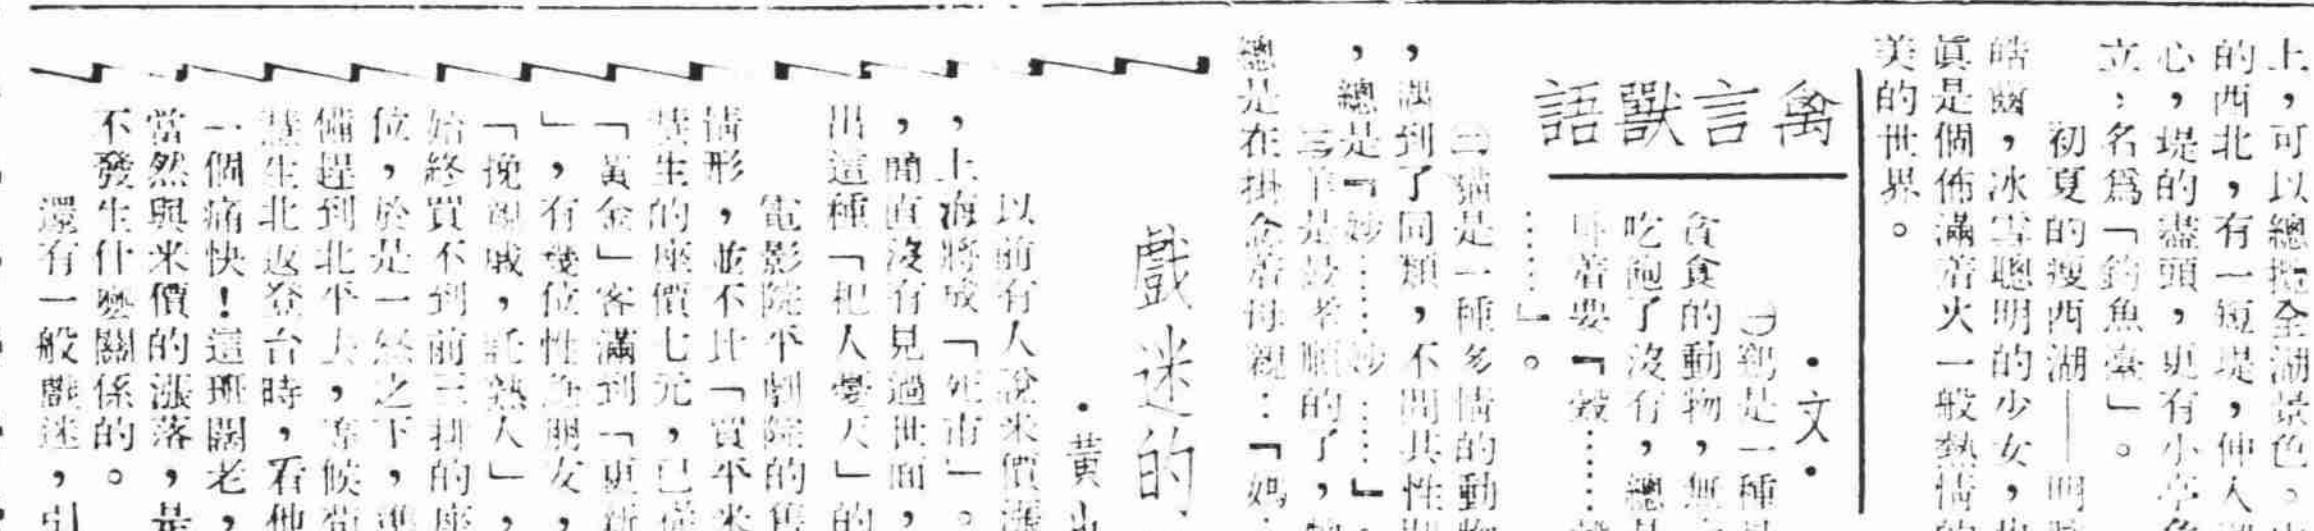 上，可以總攬全湖景色。
的西北，有一短堤，伸入
心，堤的盡頭，更有小亭
立，名爲「釣魚臺」。
初夏的瘦西湖——明
皓齒，冰雪聰明的少女，
眞是個佈滿着火一般熱情的
美的世界。
禽言獸語
・文・
㈠鷄是一種
貪食的動物，無
吃飽了沒有，總是
叫着要「穀……穀
……」。
㈡貓是一種多情的動物
，遇到了同類，不問其性別
，總是「妙……妙……」。
㈢羊是最孝順的了，牠
總是在掛念着母親：「媽
戲迷的
・黃
以前有人說米價漲
，上海將成「死市」。
，簡直沒有見過世面，
出這種「杞人憂天」的
電影院平劇院的售
情形，並不比「買平米
慧生的座價七元，已備
「黃金」客滿到「更新
」，有幾位性急朋友，
「挽親戚，託熟人」，
始終買不到前三排的座
位，於是一怒之下，準
備趕到北平去，等候荀
慧生北返登台時，看他
一個痛快！這班闊老，
當然與米價的漲落，是
不發生什麼關係的。
還有一般戲迷，引